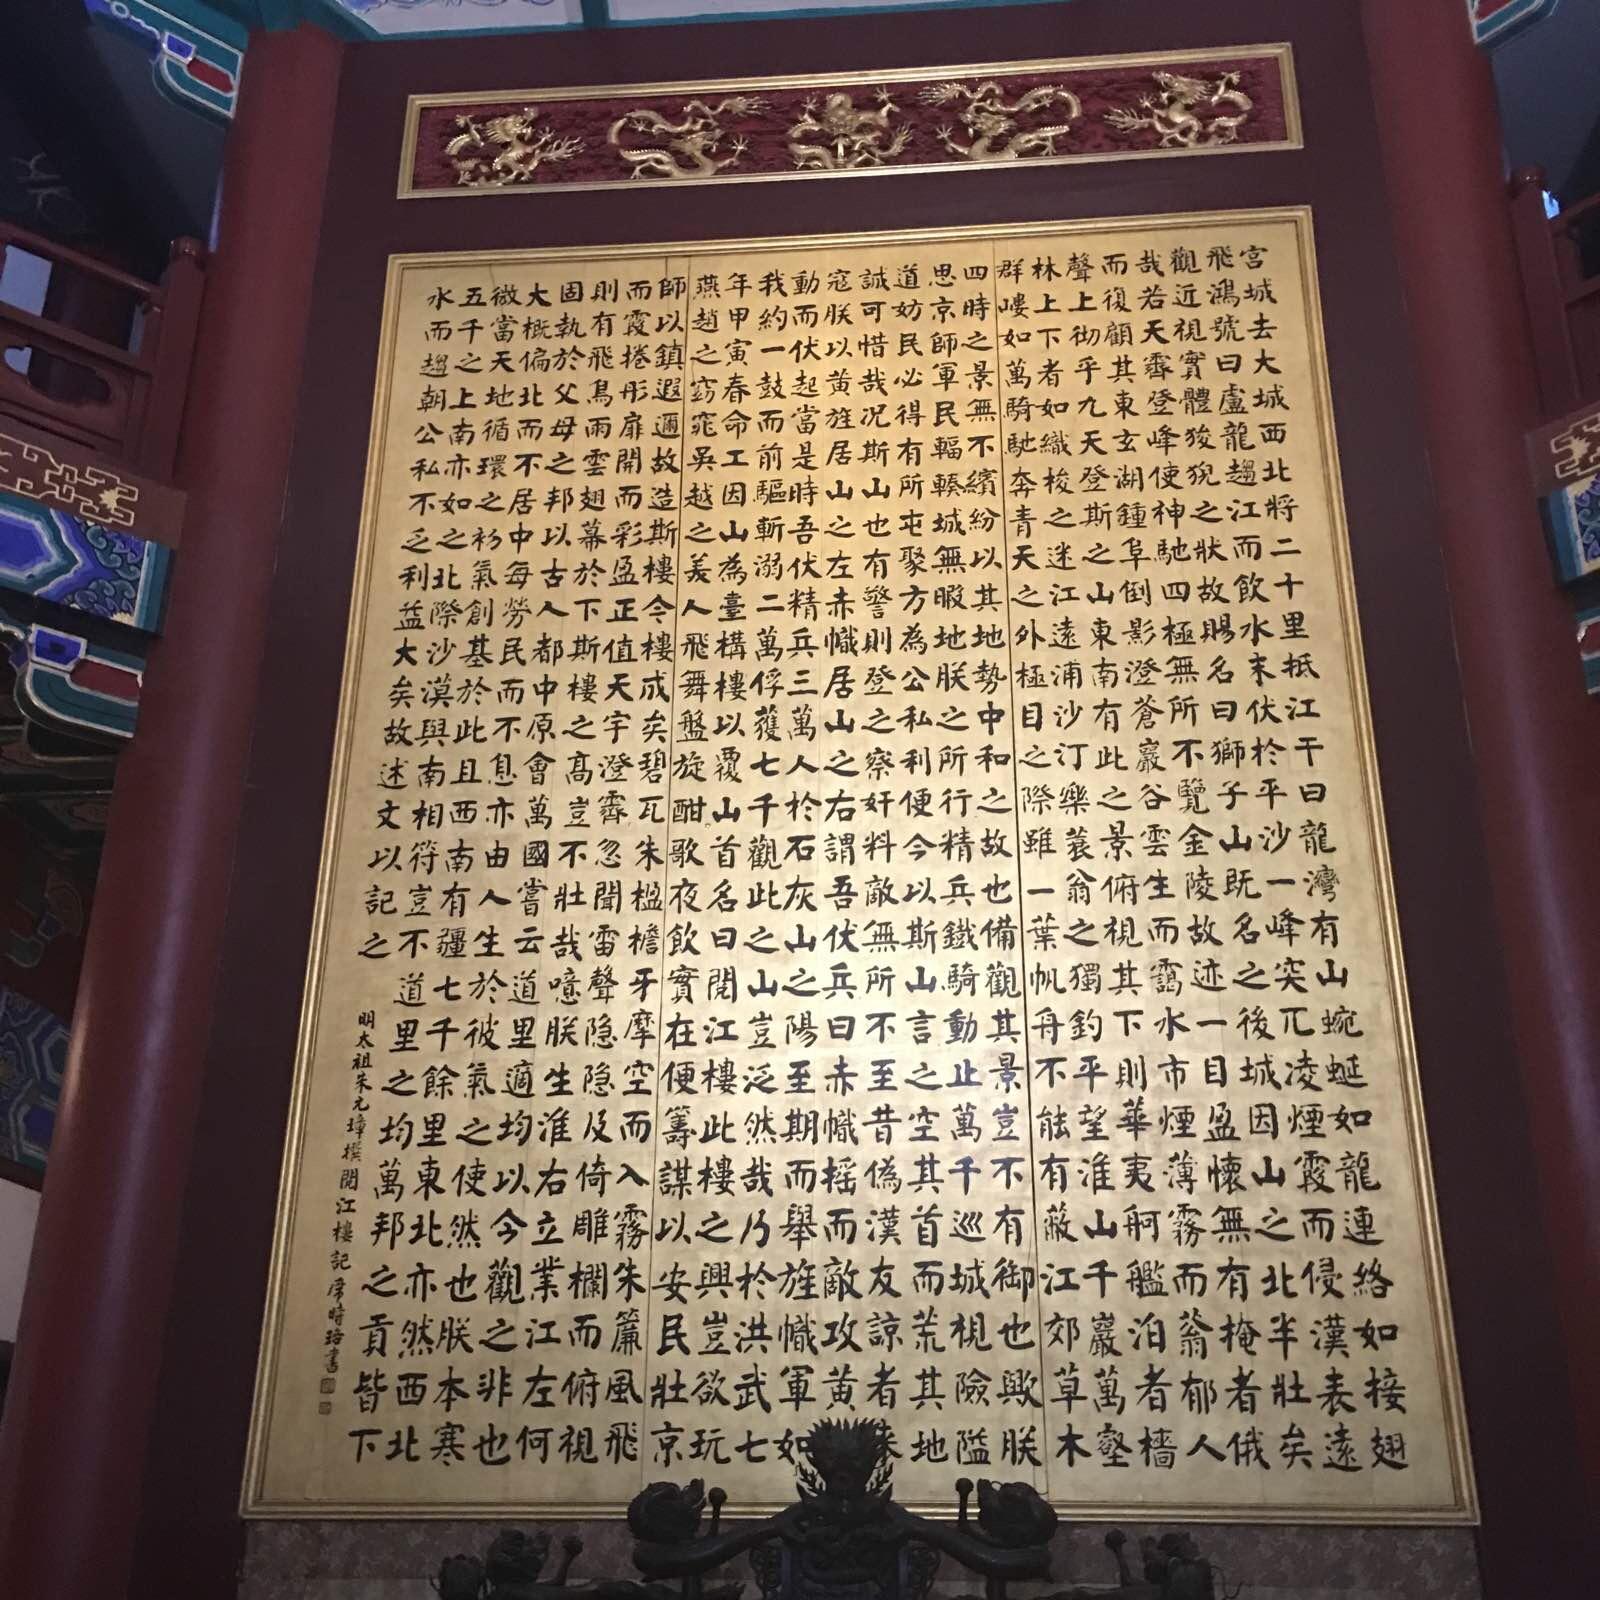 宮城去大城西北將二十里抵江干曰龍灣有山蜿蜒如龍連絡如接翅
飛鴻號曰盧龍趨江而飲水末伏於平沙一峰突兀凌煙霞而侵漢表遠
觀近視實體狻猊之狀故賜名曰獅子山既名之後城因山之北半壯矣
哉若天霽登峰使神馳四極無所不覽金陵故迹一目盈懷無有掩者俄
而復顧其東玄湖鍾阜倒影澄蒼巖谷雲生而靄水市煙薄霧而蓊郁人
聲上徹乎九天登斯之山東南有此之景俯視其下則華夷舸艦泊者檣
林上下者如織梭之迷江遠浦沙汀樂蓑翁之獨釣平望淮山千巖萬壑
群嶁如萬騎馳奔青天之外極目之際雖一葉帆舟不能有蔽江郊草木
四時之景無不繽紛以其地勢中和之故也備觀其景豈不有御也歟朕
思京師軍民輻輳城無暇地朕之所行精兵鐵騎動止萬千巡城視險隘
道妨民必得有所屯聚方為公私利便今以斯山言之空其首而荒其地
誠可惜哉况斯山也有警則登之察奸料敵無所不至昔僞漢友諒者來
寇朕以黃旌居山之左赤幟居山之右謂吾伏兵曰赤幟搖而敵攻黃
動而伏起當是時吾伏精兵三萬人於石灰山之陽至期而舉旌幟軍如
我約一鼓而前驅斬溺二萬俘獲七千觀此之山豈泛然哉乃於洪武七
年甲寅春命工因山為臺構樓以覆山首名曰閱江樓此樓之興豈欲玩
燕趙之窈窕吳越之美人飛舞盤旋酣歌夜飲實在便籌謀以安民壯京
師以鎮遐邇故造斯樓今樓成矣碧瓦朱楹檐牙摩空而入霧朱簾風飛
而霞捲彤扉開而彩盈正值天宇澄霽忽聞雷聲隐隐及倚雕欄而俯視
則有飛鳥雨雲翅幕於下斯樓之高豈不壯哉噫朕生淮右立業江左何
固執於父母之邦以古人都中原會萬國嘗云道里適均以今觀之非也
大概偏北而不居中每勞民而不息亦由人生於彼氣之使然也朕本寒
微當天地循環之初氣創基於此且西南有疆七千餘里東北亦然西北
五千之上南亦如之北際沙漠與南相符豈不道里之均萬邦之貢皆下
水而趨朝公私不乏利益大矣故述文以記之
明太祖朱元璋撰閱江樓記